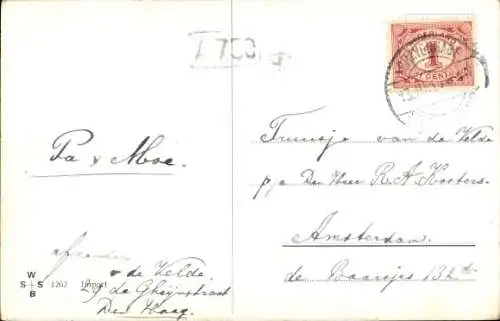 NEDERLAND
1
CENT
Pa & Moe.
afzender
v de Velde
29 de Gheijnstraat
Den Haag.
W
S+S
B
1262 Import
Truusje van de Velde
p/a Den Heer R. A. Kosters.
Amsterdam.
de Baarsjes 132